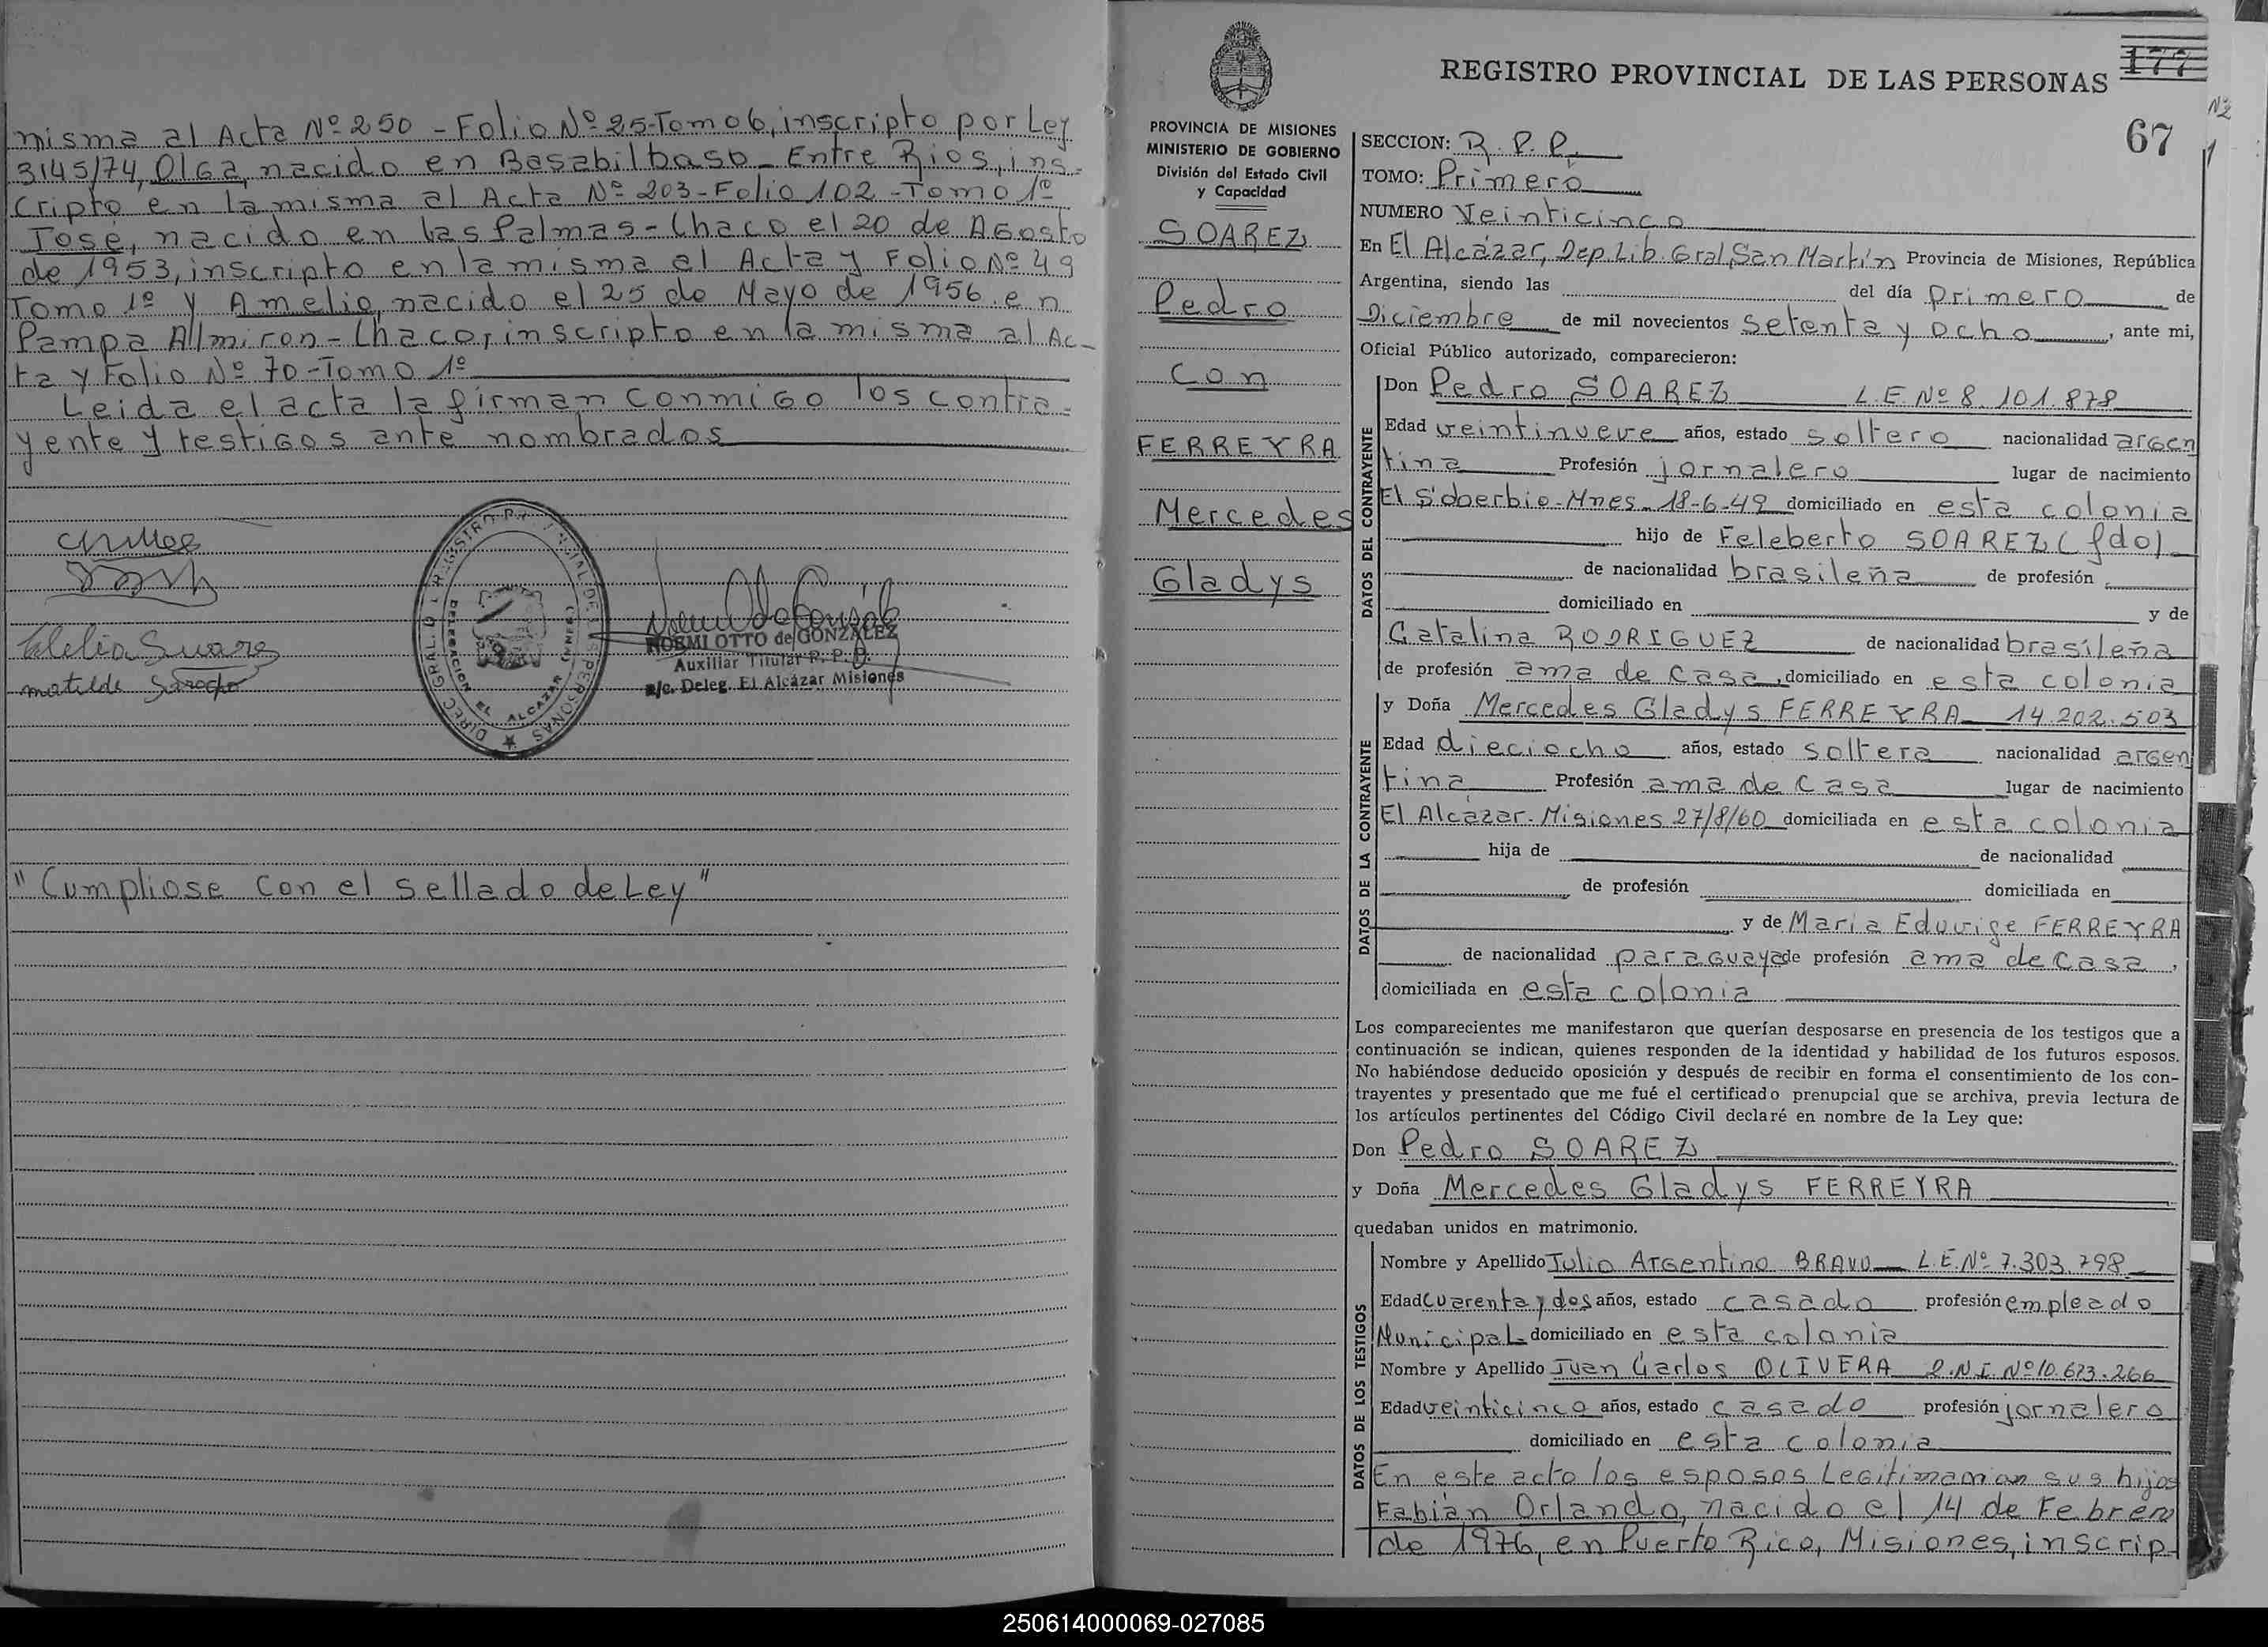 misma al Acta Nº 250 - Folio Nº 25-Tomo 6, inscripto por Ley
3145/74, Olga, nacido en Basabilbaso - Entre Rios, ins-
cripto en la misma al Acta Nº 203-Folio 102-Tomo 1º
José, nacido en las Palmas-Chaco el 20 de Agosto
de 1953, inscripto en la misma al Acta y Folio Nº 49
Tomo 1º y Amelio, nacido el 25 de Mayo de 1956 en
Pampa Almiron-Chaco, inscripto en la misma al Ac-
ta y Folio Nº 70-Tomo 1º
Leida el acta la firman conmigo los contra-
yente y testigos ante nombrados
matilde
NORMI OTTO de GONZALEZ
Auxiliar Titular R. P. P.
a/c. Deleg. El Alcázar Misiones
DELEGACION EL ALCAZAR (MNES)
"Cumpliose con el sellado de Ley"
177
REGISTRO PROVINCIAL DE LAS PERSONAS
67
PROVINCIA DE MISIONES
MINISTERIO DE GOBIERNO
División del Estado Civil
y Capacidad
SOAREZ
Pedro
con
FERREYRA
Mercedes
Gladys
SECCION: R. P. P.
TOMO: Primero
NUMERO Veinticinco
En El Alcázar, Dep Lib. Gral, San Martín Provincia de Misiones, República
Argentina, siendo las del día primero de
Diciembre de mil novecientos setenta y ocho, ante mi,
Oficial Público autorizado, comparecieron:
DATOS DEL CONTRAYENTE
Don Pedro SOAREZ L.E. Nº 8.101.878
Edad veintinueve años, estado soltero nacionalidad argen
tina Profesión jornalero lugar de nacimiento
El Soberbio-Mnes. 18-6-49 domiciliado en esta colonia
hijo de Feleberto SOAREZ (fdo)
de nacionalidad brasileña de profesión
domiciliado en y de
Catalina RODRIGUEZ de nacionalidad brasileña
de profesión ama de casa, domiciliado en esta colonia
DATOS DE LA CONTRAYENTE
y Doña Mercedes Gladys FERREYRA 14.202.503
Edad dieciocho años, estado soltera nacionalidad argen
tina Profesión ama de casa lugar de nacimiento
El Alcázar-Misiones 27/8/60 domiciliada en esta colonia
hija de de nacionalidad
de profesión domiciliada en
y de Maria Eduvige FERREYRA
de nacionalidad paraguaya de profesión ama de casa,
domiciliada en esta colonia
Los comparecientes me manifestaron que querían desposarse en presencia de los testigos que a
continuación se indican, quienes responden de la identidad y habilidad de los futuros esposos.
No habiéndose deducido oposición y después de recibir en forma el consentimiento de los con-
trayentes y presentado que me fué el certificado prenupcial que se archiva, previa lectura de
los artículos pertinentes del Código Civil declaré en nombre de la Ley que:
Don Pedro SOAREZ
y Doña Mercedes Gladys FERREYRA
quedaban unidos en matrimonio.
DATOS DE LOS TESTIGOS
Nombre y Apellido Julio Argentino BRAVO L.E. Nº 7.303.798
Edad cuarenta y dos años, estado casado profesión empleado
Municipal domiciliado en esta colonia
Nombre y Apellido Juan Carlos OLIVERA D.N.I. Nº 10.673.266
Edad veinticinco años, estado casado profesión jornalero
domiciliado en esta colonia
En este acto los esposos Legitiman a sus hijos
Fabián Orlando, nacido el 14 de Febrero
de 1976, en Puerto Rico, Misiones, inscrip-
250614000069-027085